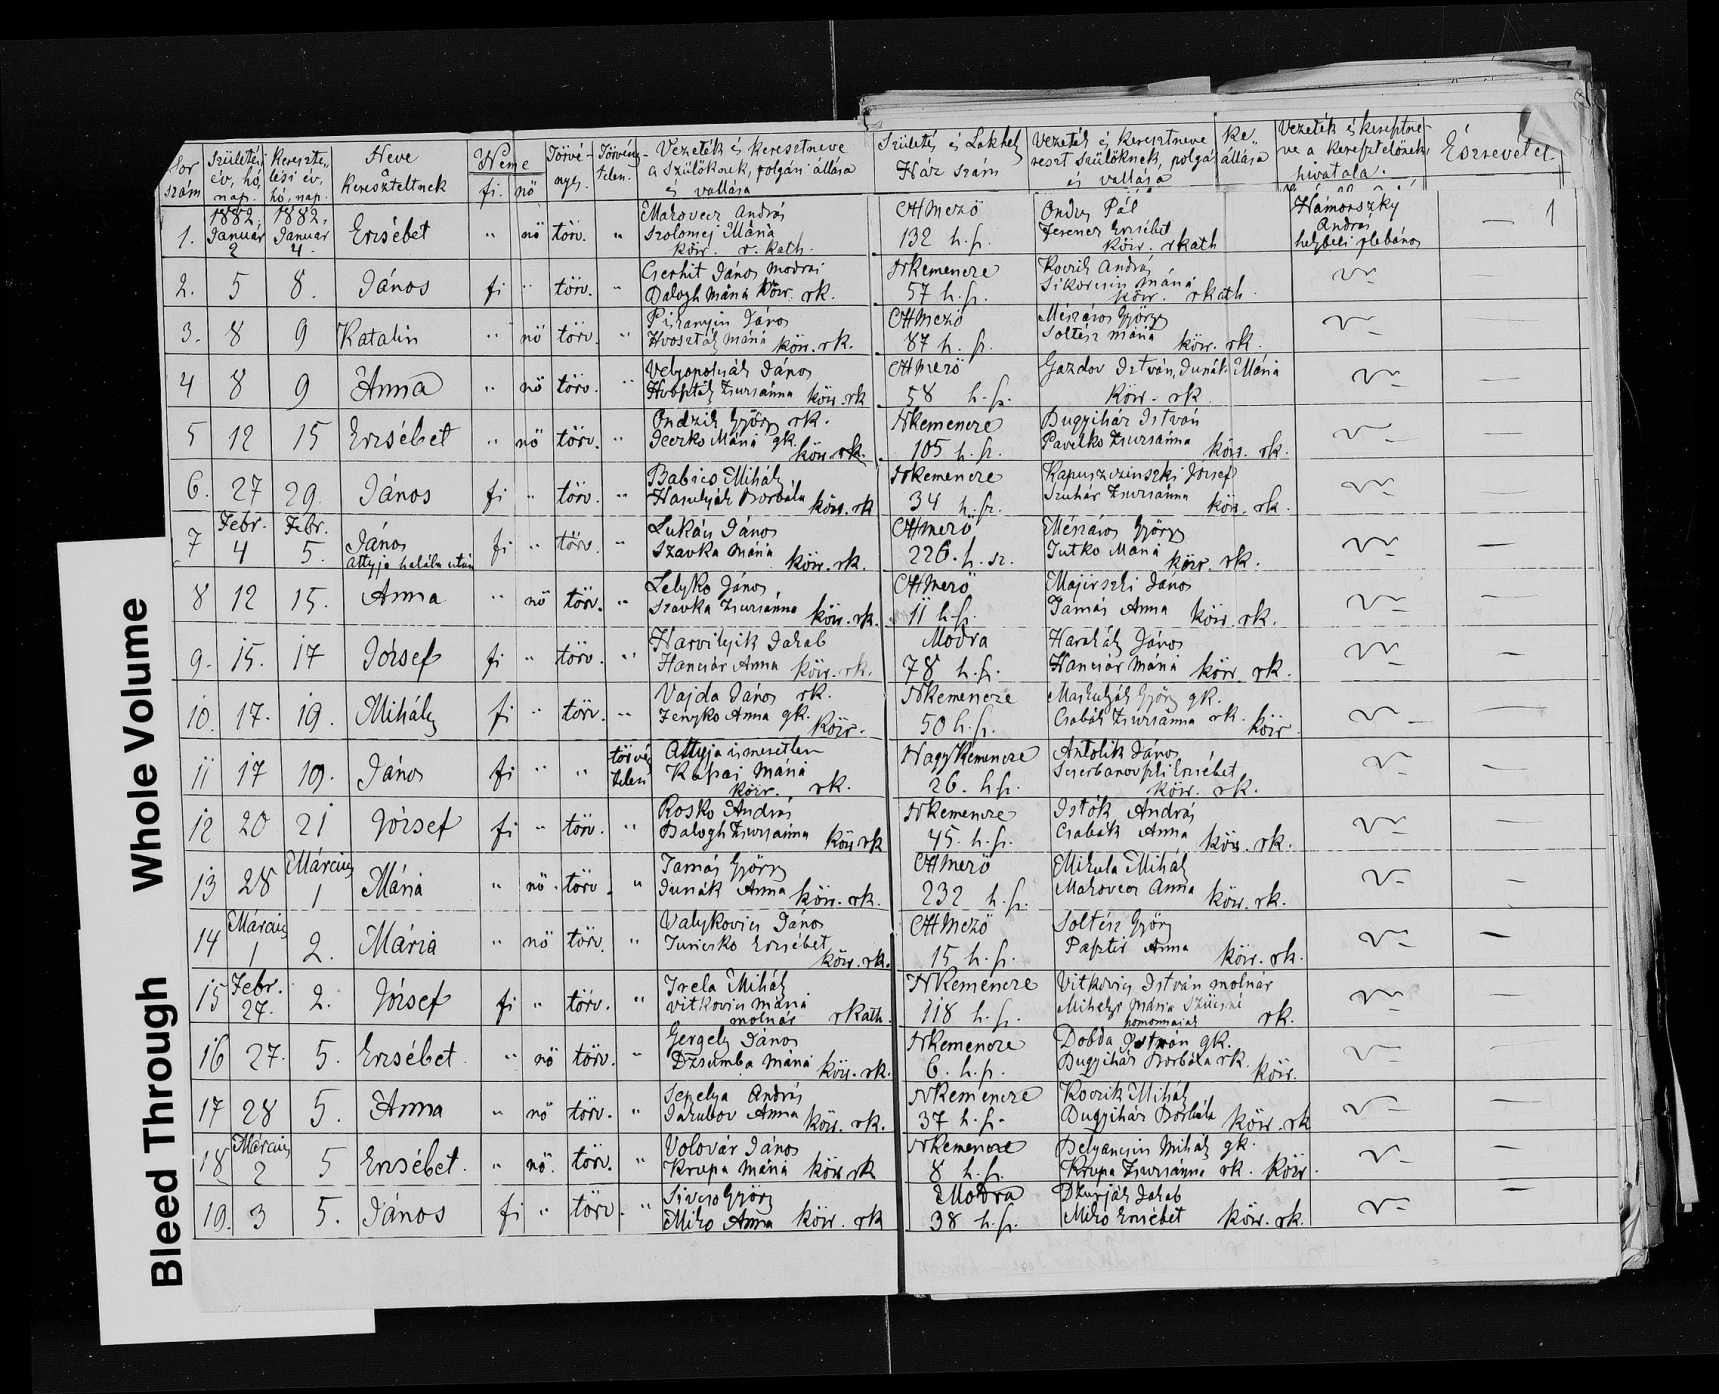 Bleed Through Whole Volume
Sor szám
Születés, év, hó, nap.
Keresztelési év, hó, nap.
Neve a kereszteltnek
Neme
fi. nő
Törvényes.
Törvénytelen.
Vezeték és keresztneve a szülőknek, polgári állása és vallása
Születés és Lakhely Ház szám
Vezeték és keresztneve
és vallása
Vezeték és
hivatala.
Észrevétel.
1
1. 1882. Január 2 1882. Január 4. Erzsébet " nő törv. "
Makovecz András
Mária
köir. r. kath.
OHmező
132 h. sz.
Ondus Pál
Ferencz Erzsébet
köir. rkath
Hámorszky
András
helybeli plebános
—
2. 5 8. János fi " törv. "
János Modrai
Balogh Mária köir. rk.
NKemencze
57 h. sz.
Koczik András
Mária
köir. rkath.
—
3. 8 9 Katalin " nő törv. "
János
Mária köir. rk.
OHmező
87 h. sz.
Mészáros György
Soltész Mária köir. rk.
—
4 8 9 Anna " nő törv. "
János
Zsuzsánna köir. rk
OHmező
58 h. sz.
Gazdov István, Dunák Mária
köir. rk.
—
5 12 15 Erzsébet " nő törv. "
Ondzik György rk.
Mária gk.
köir. rk.
NKemencze
105 h. sz.
Bugyihár István
Pavelko Zsuzsánna köir. rk.
—
6. 27 29. János fi " törv. "
Babics Mihály
Borbála köir. rk
NKemencze
34 h. sz.
József
Szuhár Zsuzsánna
köir. rk.
—
7 Febr. 4 Febr. 5. János
attyja halála után
fi " törv. "
Lukács János
Szavka Mária köir. rk.
OHmező
226. h. sz.
Mészáros György
Mária köir. rk.
—
8 12 15. Anna " nő törv. "
Lelyko János
Szavka Zsuzsánna köir. rk.
OHmező
11 h. sz.
Majirszki János
Tamás Anna köir. rk.
—
9. 15. 17 József fi " törv. "
Harvilyik Jakab
Hanczár Anna köir. rk.
Modra
78 h. sz.
Harakály János
Hanczár Mária köir. rk.
—
10. 17. 19. Mihály fi " törv. "
Vajda János rk.
Anna gk. köir.
NKemencze
50 h. sz.
György gk.
Csabák Zsuzsánna rk. köir
—
11 17 19. János fi " " törvénytelen
Attyja ismeretlen
Kapai Mária
köir. rk.
NagyKemencze
26. h. sz.
Antolik János
Erzsébet
köir. rk.
—
12 20 21 József fi " törv. "
Rosko András
Balogh Zsuzsánna köir rk
NKemencze
45. h. sz.
Istók András
Csabák Anna köir. rk.
—
13 28 Március 1 Mária " nő. törv. "
Tamás György
Dunák Anna köir. rk.
OHmező
232 h. sz.
Mikula Mihály
Makovecz Anna köir. rk.
—
14 Március 1 2. Mária " nő törv. "
Valykovics János
Juricsko Erzsébet
köir. rk.
OHmező
15 h. sz.
Soltész György
Anna köir. rk.
—
15 Febr. 27. 2. József fi " törv. "
Trela Mihály
Vitkovics Mária
molnár rkath.
NKemencze
118 h. sz.
Vitkovics István molnár
Mária
homonnaiak rk.
—
16 27. 5. Erzsébet " nő törv. "
Gergely János
Dzsumba Mária köir. rk.
NKemencze
6. h. sz.
Dobda István gk.
Bugyihár Borbála rk. köir.
—
17 28 5. Anna " nő törv. "
Sepelya András
Jakubov Anna köir. rk.
NKemencze
37 h. sz.
Koczik Mihály
Bugyihár Borbála köir. rk
—
18 Március 2 5 Erzsébet. " nő. törv. "
Volovár János
Krupa Mária köir rk
NKemencze
8 h. sz.
Mihály gk.
Krupa Zsuzsánna rk. köir.
—
19. 3 5. János fi " törv. "
György
Miko Anna köir. rk
Modra
38 h. sz.
Dzurják Jakab
Miko Erzsébet köir. rk.
—